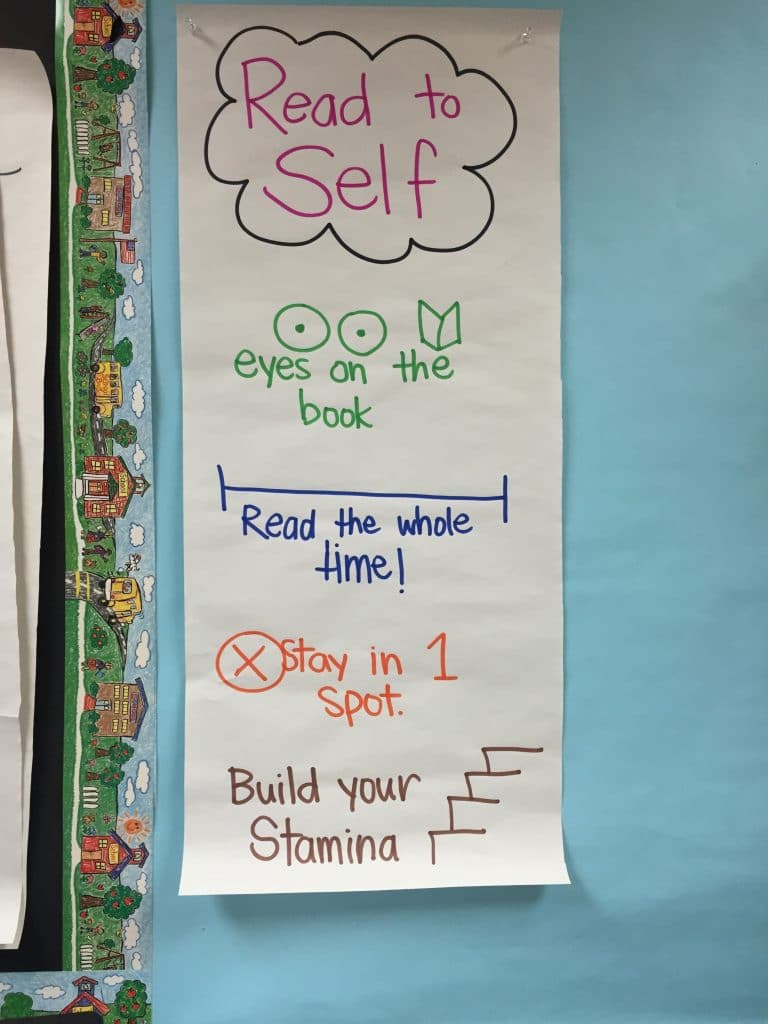 Read to
Self
eyes on the
book
Read the whole
time!
Stay in 1
spot.
Build your
Stamina